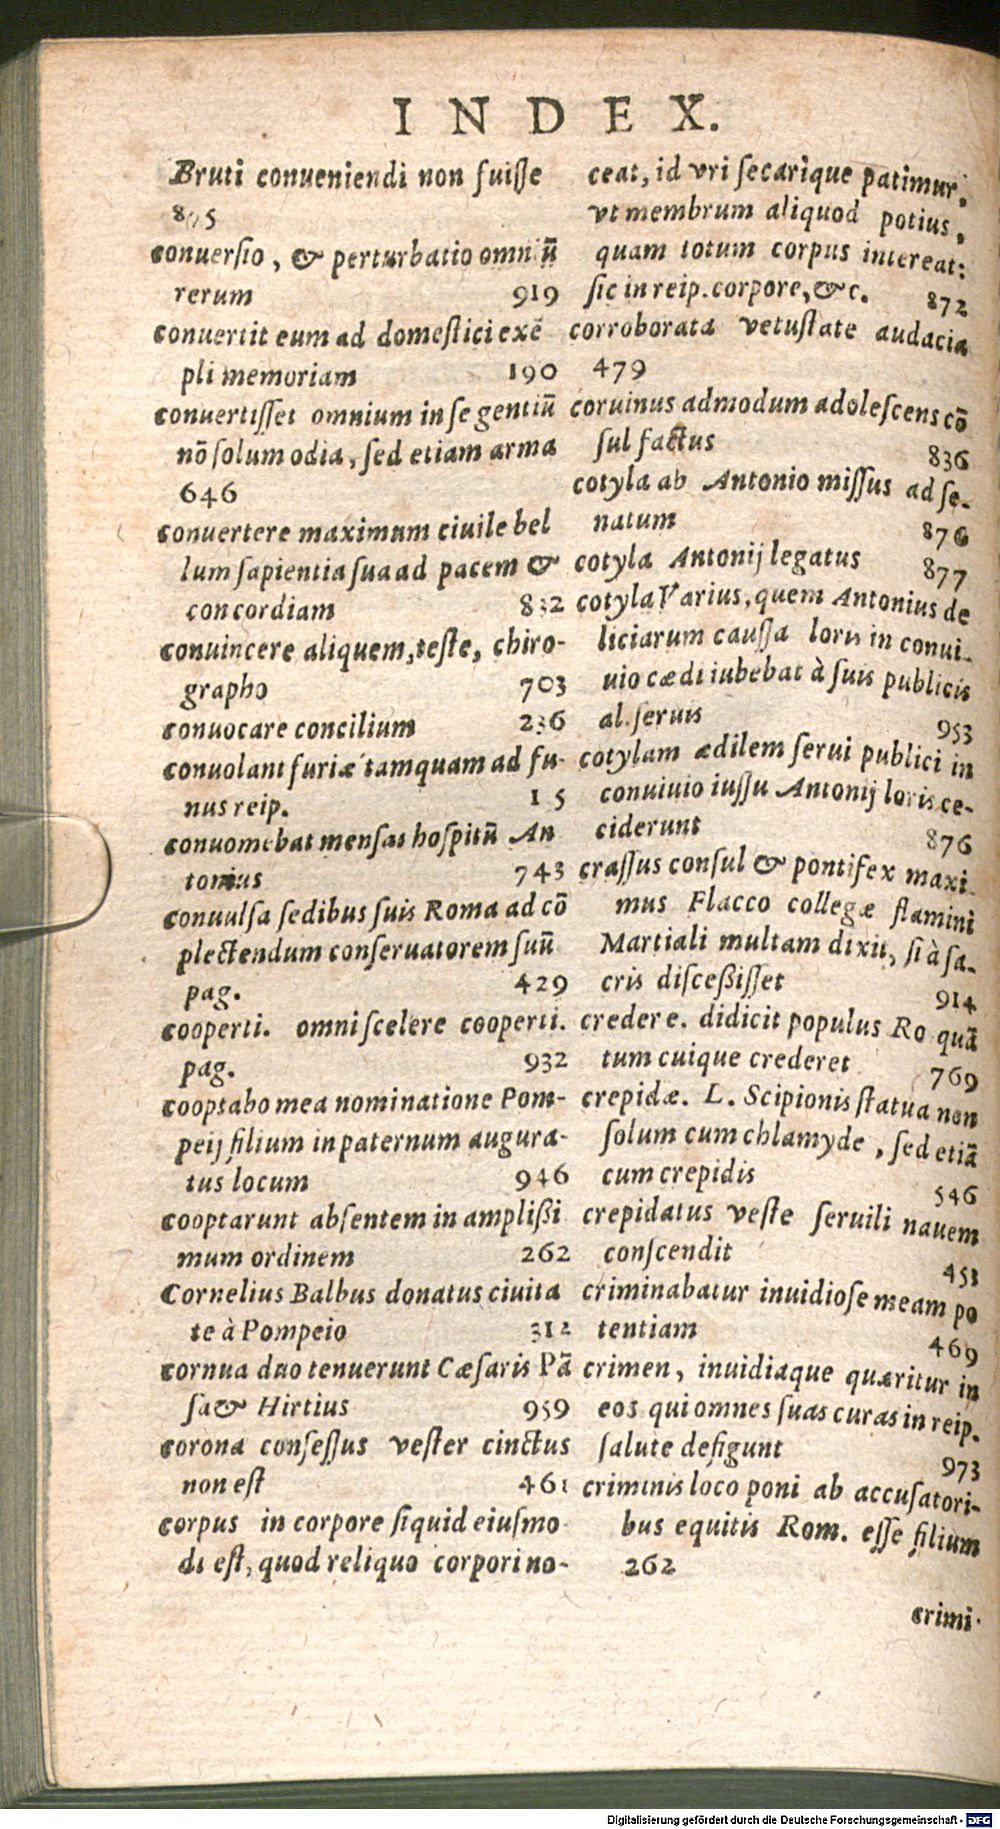 INDEX.
Bruti conueniendi non fuiſſe
895
conuerſio, & perturbatio omniū
rerum 919
conuertit eum ad domeſtici exē
pli memoriam 190
conuertiſſet omnium in ſe gentiū
nō ſolum odia, ſed etiam arma
646
conuertere maximum ciuile bel
lum ſapientia ſua ad pacem &
concordiam 832
conuincere aliquem, teſte, chiro-
grapho 703
conuocare concilium 236
conuolant furiæ tamquam ad fu-
nus reip. 15
conuomebat menſas hoſpitū An
tonius 743
conuulſa ſedibus ſuis Roma ad cō
plectendum conſeruatorem ſuū
pag. 429
cooperti. omni ſcelere cooperti.
pag. 932
cooptabo mea nominatione Pom-
peij filium in paternum augura-
tus locum 946
cooptarunt abſentem in ampliſsi
mum ordinem 262
Cornelius Balbus donatus ciuita
te à Pompeio 312
cornua duo tenuerunt Cæſaris Pā
ſa & Hirtius 959
corona conſeſſus veſter cinctus
non eſt 461
corpus in corpore ſiquid eiuſmo
di eſt, quod reliquo corpori no-
ceat, id vri ſecarique patimur,
vt membrum aliquod potius,
quam totum corpus intereat:
ſic in reip. corpore, &c. 872
corroborata vetuſtate audacia
479
coruinus admodum adoleſcens cō
ſul factus 836
cotyla ab Antonio miſſus ad ſe-
natum 876
cotyla Antonij legatus 877
cotyla Varius, quem Antonius de
liciarum cauſſa loris in conui-
uio cædi iubebat à ſuis publicis
al. ſeruis 953
cotylam ædilem ſerui publici in
conuiuio iuſſu Antonij loris ce-
ciderunt 876
craſſus conſul & pontifex maxi-
mus Flacco collegæ flamini
Martiali multam dixit, ſi à ſa-
cris diſceſsiſſet 914
credere. didicit populus Ro quā
tum cuique crederet 769
crepidæ. L. Scipionis ſtatua non
ſolum cum chlamyde, ſed etiā
cum crepidis 546
crepidatus veſte ſeruili nauem
conſcendit 453
criminabatur inuidioſe meam po
tentiam 469
crimen, inuidiaque quæritur in
eos qui omnes ſuas curas in reip.
ſalute defigunt 973
criminis loco poni ab accuſatori-
bus equitis Rom. eſſe filium
262
crimi-
Digitalisierung gefördert durch die Deutsche Forschungsgemeinschaft - DFG